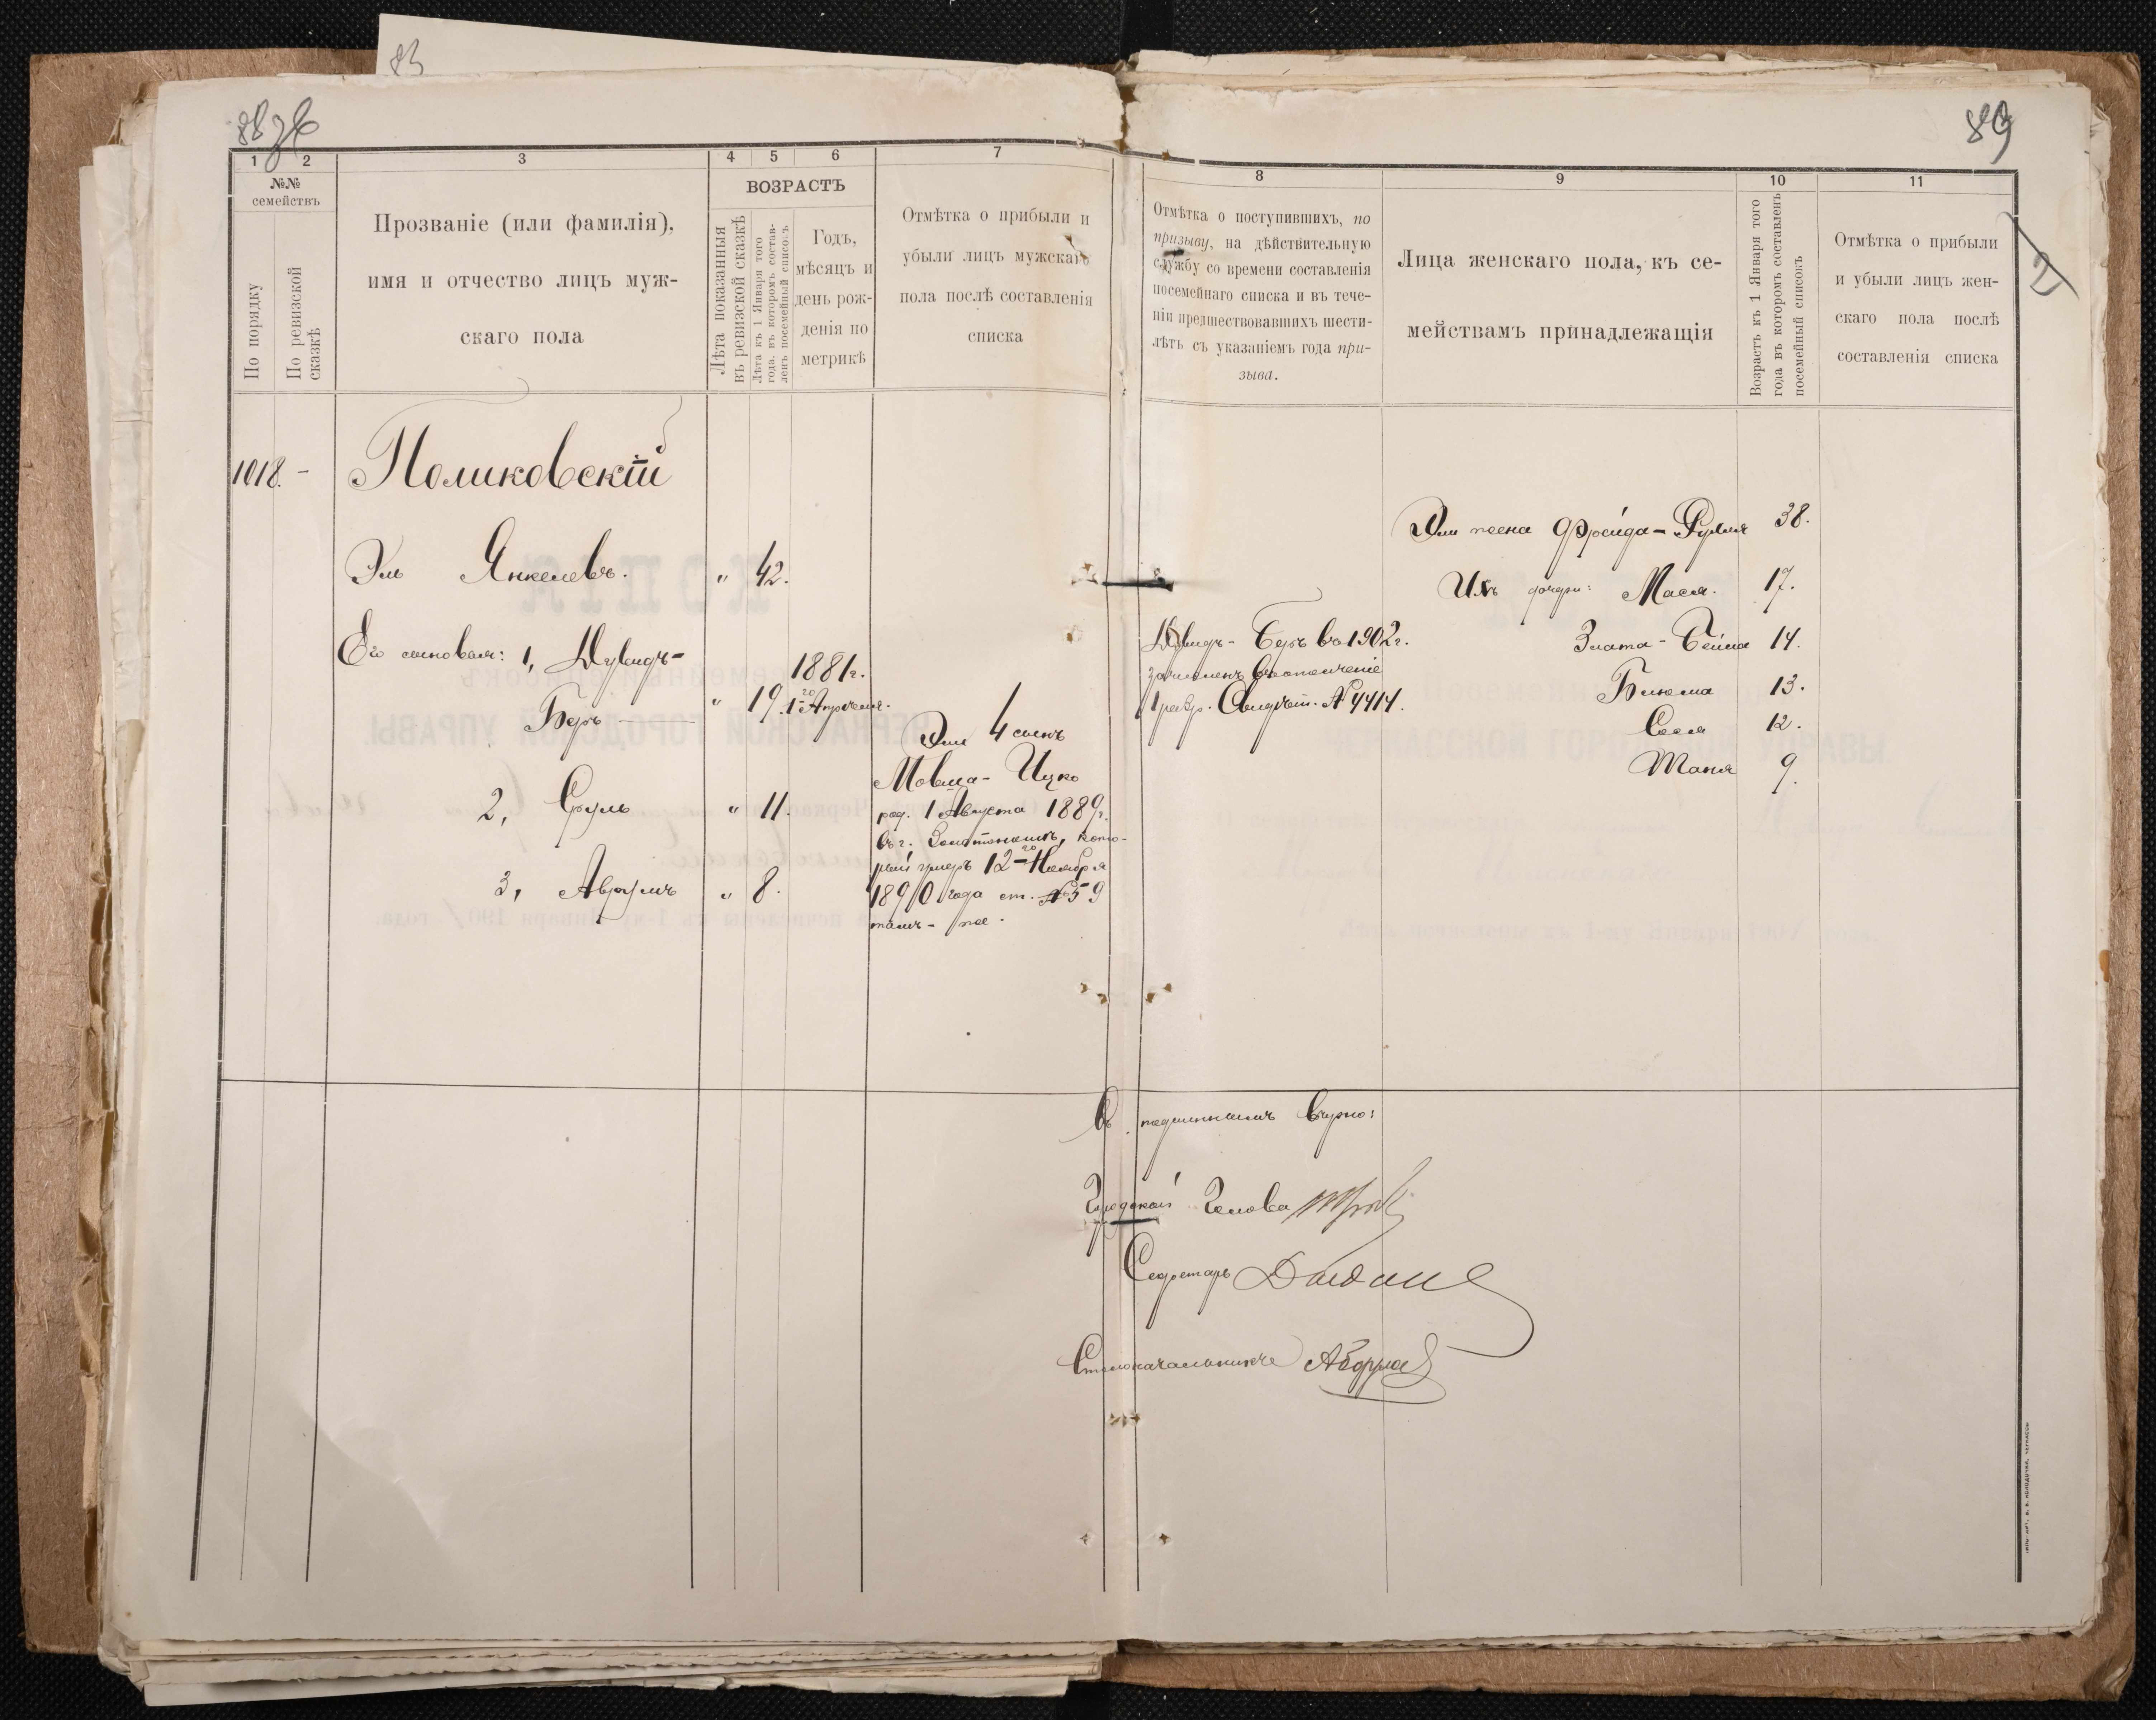 83
89
1 2 3 4 5 6 7
№№ семействъ
По порядку
По ревизской сказкѣ
Прозваніе (или фамилія),
имя и отчество лицъ муж-
скаго пола
ВОЗРАСТЪ
Лѣта показанныя
въ ревизской сказкѣ
Лѣта къ 1 Января того
года, въ которомъ состав-
ленъ посемейный списокъ
Годъ,
мѣсяцъ и
день рож-
денія по
метрикѣ
Отмѣтка о прибыли и
убыли лицъ мужскаго
пола послѣ составленія
списка
8 9 10 11
Отмѣтка о поступившихъ, по
призыву, на дѣйствительную
службу со времени составленія
посемейнаго списка и въ тече-
ніи предшествовавшихъ шести-
лѣтъ съ указаніемъ года при-
зыва.
Лица женскаго пола, къ се-
мействамъ принадлежащія
Возрастъ къ 1 Января того
года въ которомъ составленъ
посемейный списокъ
Отмѣтка о прибыли
и убыли лицъ жен-
скаго пола послѣ
составленія списка
2
1018. -
Поликовскій
Эль Янкелевъ. " 42.
Его сыновья: 1, Дувидъ-
Беръ " 19. 1881г.
1го Апрѣля.
2, Сруль " 11.
3, Аврумъ " 8.
Эли 4 сынъ
Мовша-Ицко
род. 1 Августа 1889г.
въ г. Золотоношѣ, кото-
рый умеръ 12-го Ноября
1890 года ст. №59
тамъ-же.
Дувидъ-Беръ въ 1902г.
зачисленъ въ ополченіе
1 разр. Свидѣт. №4414.
Эли жена Фрейда-Рухля 38.
Ихъ дочери: Мася. 17.
Злата-Бейла 14.
Блюма 13.
Сося 12.
Таня 9.
Съ подлиннымъ вѣрно:
Городской Голова
Секретарь
Столоначальникъ